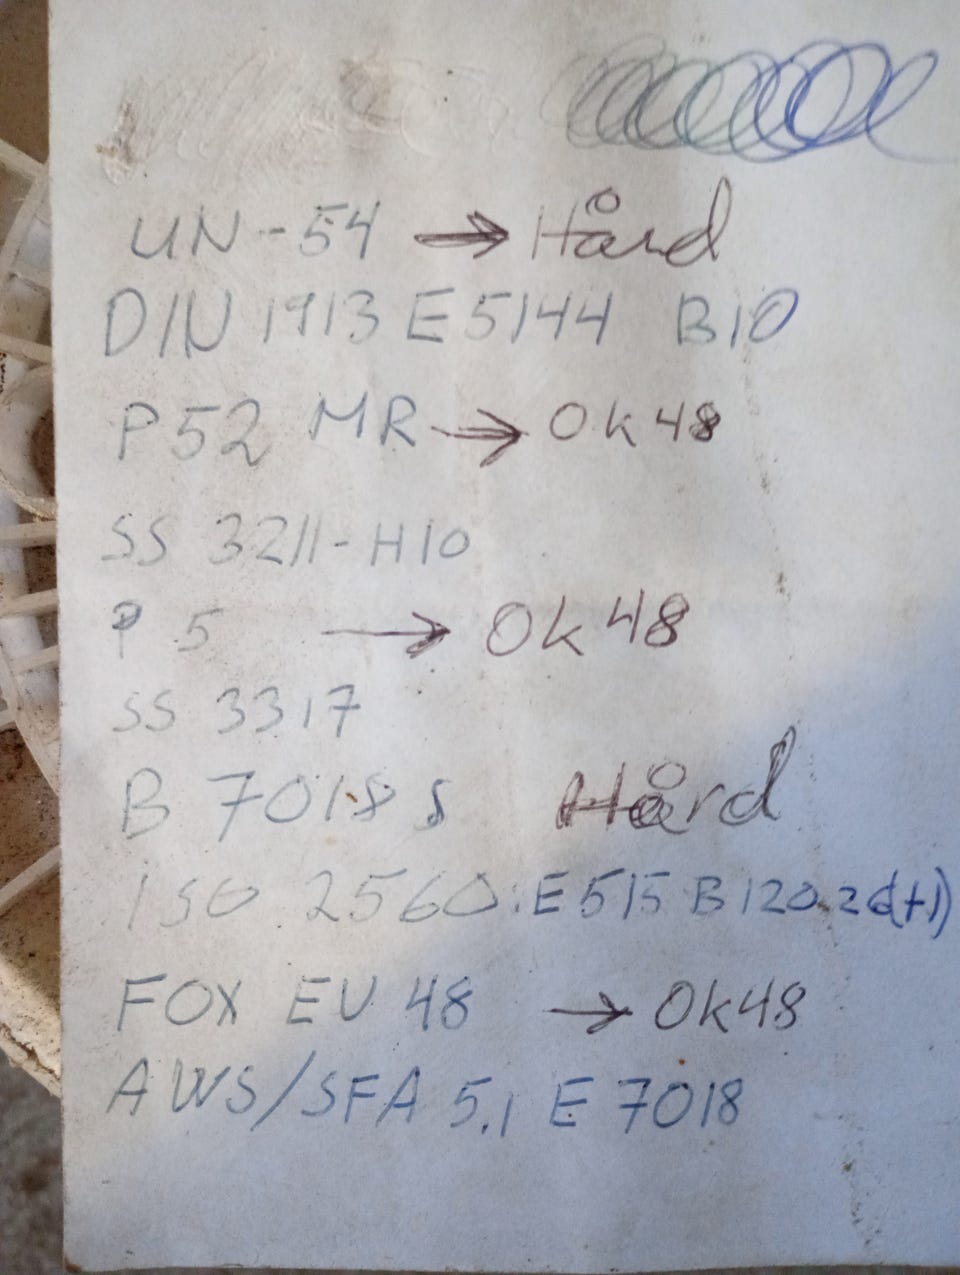 UN-54 → Hård
DIN 1913 E5144 B10
P52 MR → Ok 48
SS 3211-H10
P 5 → Ok 48
SS 3317
B 7018 S Hård
ISO 2560:E515 B 120 2d(+1)
FOX EV 48 → Ok48
AWS/SFA 5,1 E 7018